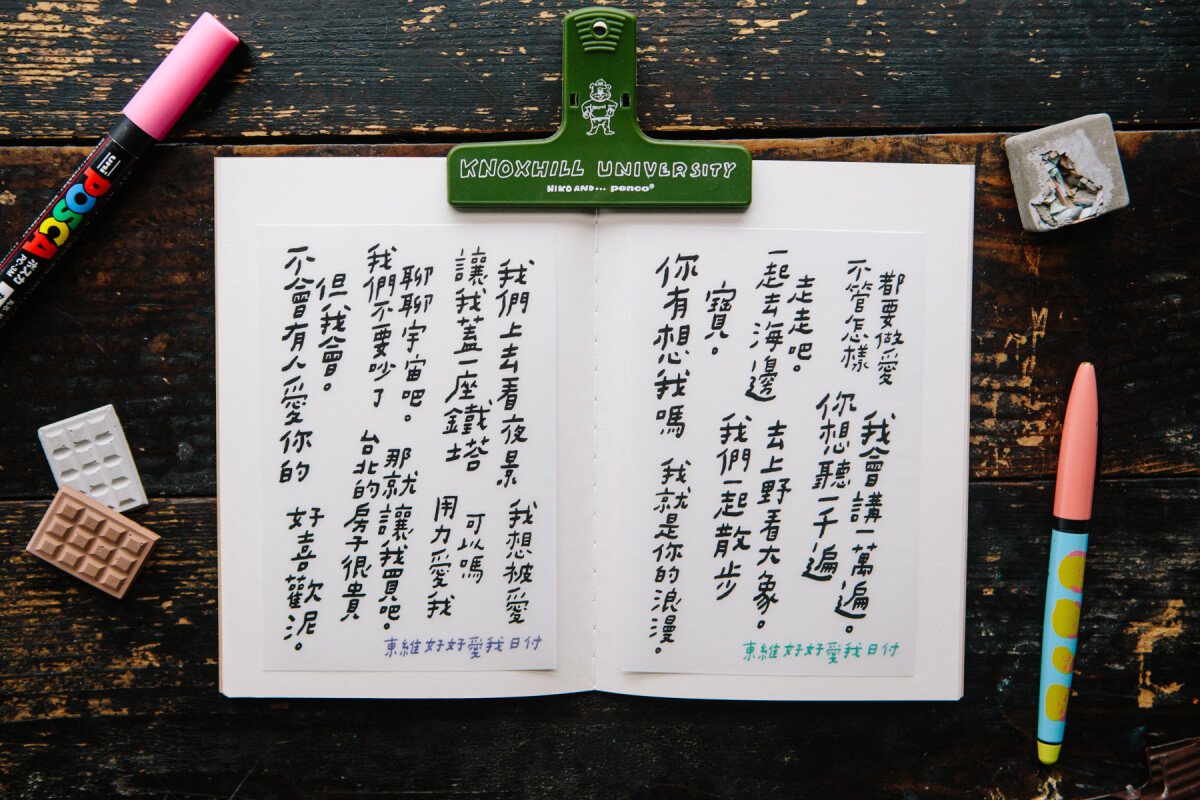 KNOXHILL UNIVERSITY
NIKO AND... penco®
uni
POSCA
ポスカ
PC-3M
不會有人愛你的
但我會。
我們不要吵了
聊聊宇宙吧。
讓我蓋一座鐵塔
我們上去看夜景
好喜歡泥。
台北的房子很貴
那就讓我買吧。
用力愛我
可以嗎
我想被愛
東維好好愛我日付
你有想我嗎
寶。
一起去海邊
走走吧。
不管怎樣
都要做愛
我就是你的浪漫。
我們一起散步
去上野看大象。
你想聽一千遍
我會講一萬遍。
東維好好愛我日付